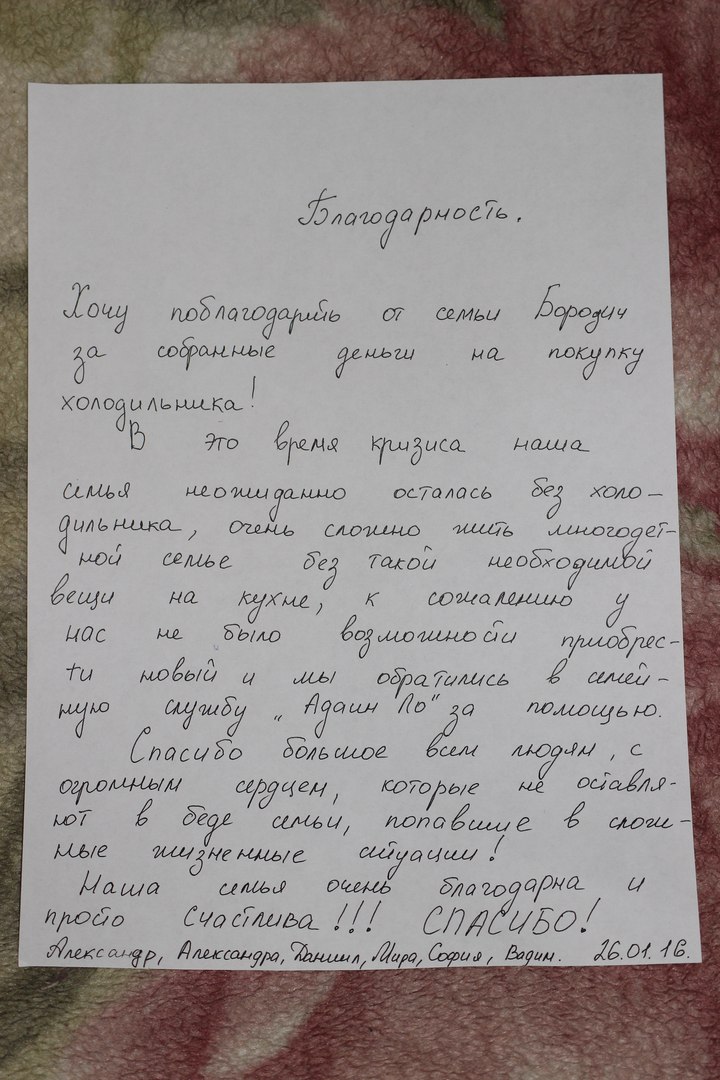 Благодарность.
Хочу поблагодарить от семьи Бородич
за собранные деньги на покупку
холодильника!
В это время кризиса наша
семья неожиданно осталась без холо-
дильника, очень сложно жить многодет-
ной семье без такой необходимой
вещи на кухне, к сожалению у
нас не было возможности приобрес-
ти новый и мы обратились в семей-
ную службу „Адаин Ло" за помощью.
Спасибо большое всем людям, с
огромным сердцем, которые не оставля-
ют в беде семьи, попавшие в слож-
ные жизненные ситуации!
Наша семья очень благодарна и
просто счастлива!!! СПАСИБО!
Александр, Александра, Даниил, Мира, София, Вадим. 26.01.16.